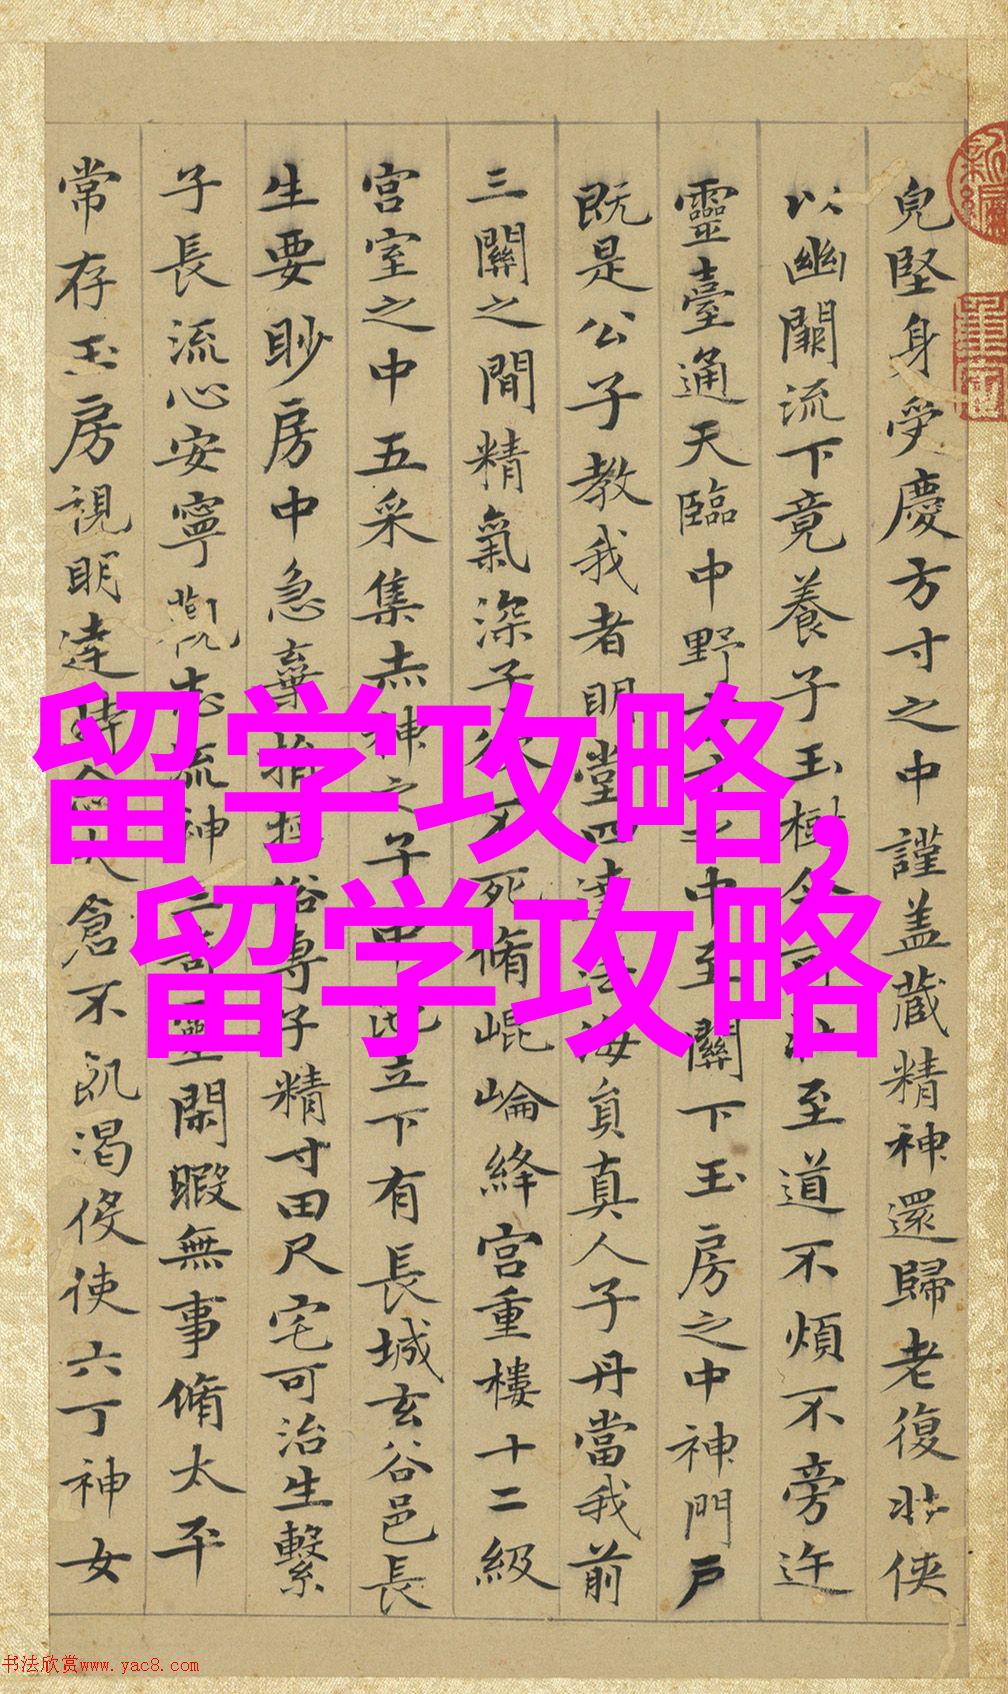 皃堅身受慶方寸之中謹盖蔵精神還歸老復壮侠
以幽闕流下竟養子玉樹令可壮至道不煩不旁迕
靈臺通天臨中野方寸之中至關下玉房之中神門户
既是公子教我者明堂四達法海員真人子丹當我前
三關之間精氣深子欲不死脩崐崘絳宫重樓十二級
宫室之中五采集赤神之子中池立下有長城玄谷邑長
生要眇房中急棄捐俗專子精寸田尺宅可治生繫
子長流心安寧觀志流神三奇靈閑暇無事脩太平
常存玉房視明達時念大倉不飢渴侯使六丁神女
留学攻略,
留学攻略
书法欣赏www.yac8.com